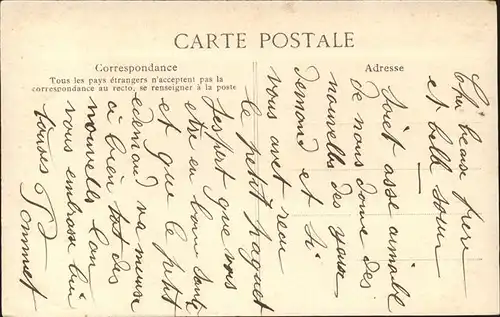 CARTE POSTALE
Correspondance
Tous les pays étrangers n'acceptent pas la
correspondance au recto, se renseigner à la poste
Adresse
Cher beau frere
et belle sœur
soiet asse aimable
de nous donne des
nouvelles des yeux
demond et si
vous avet reeu
le petit paquet
Jespert que vous
etse en bonne sante
et que le ptit
edmond va mieuse
a bien tot des
nouvelle on
vous embrasse bien
toutes